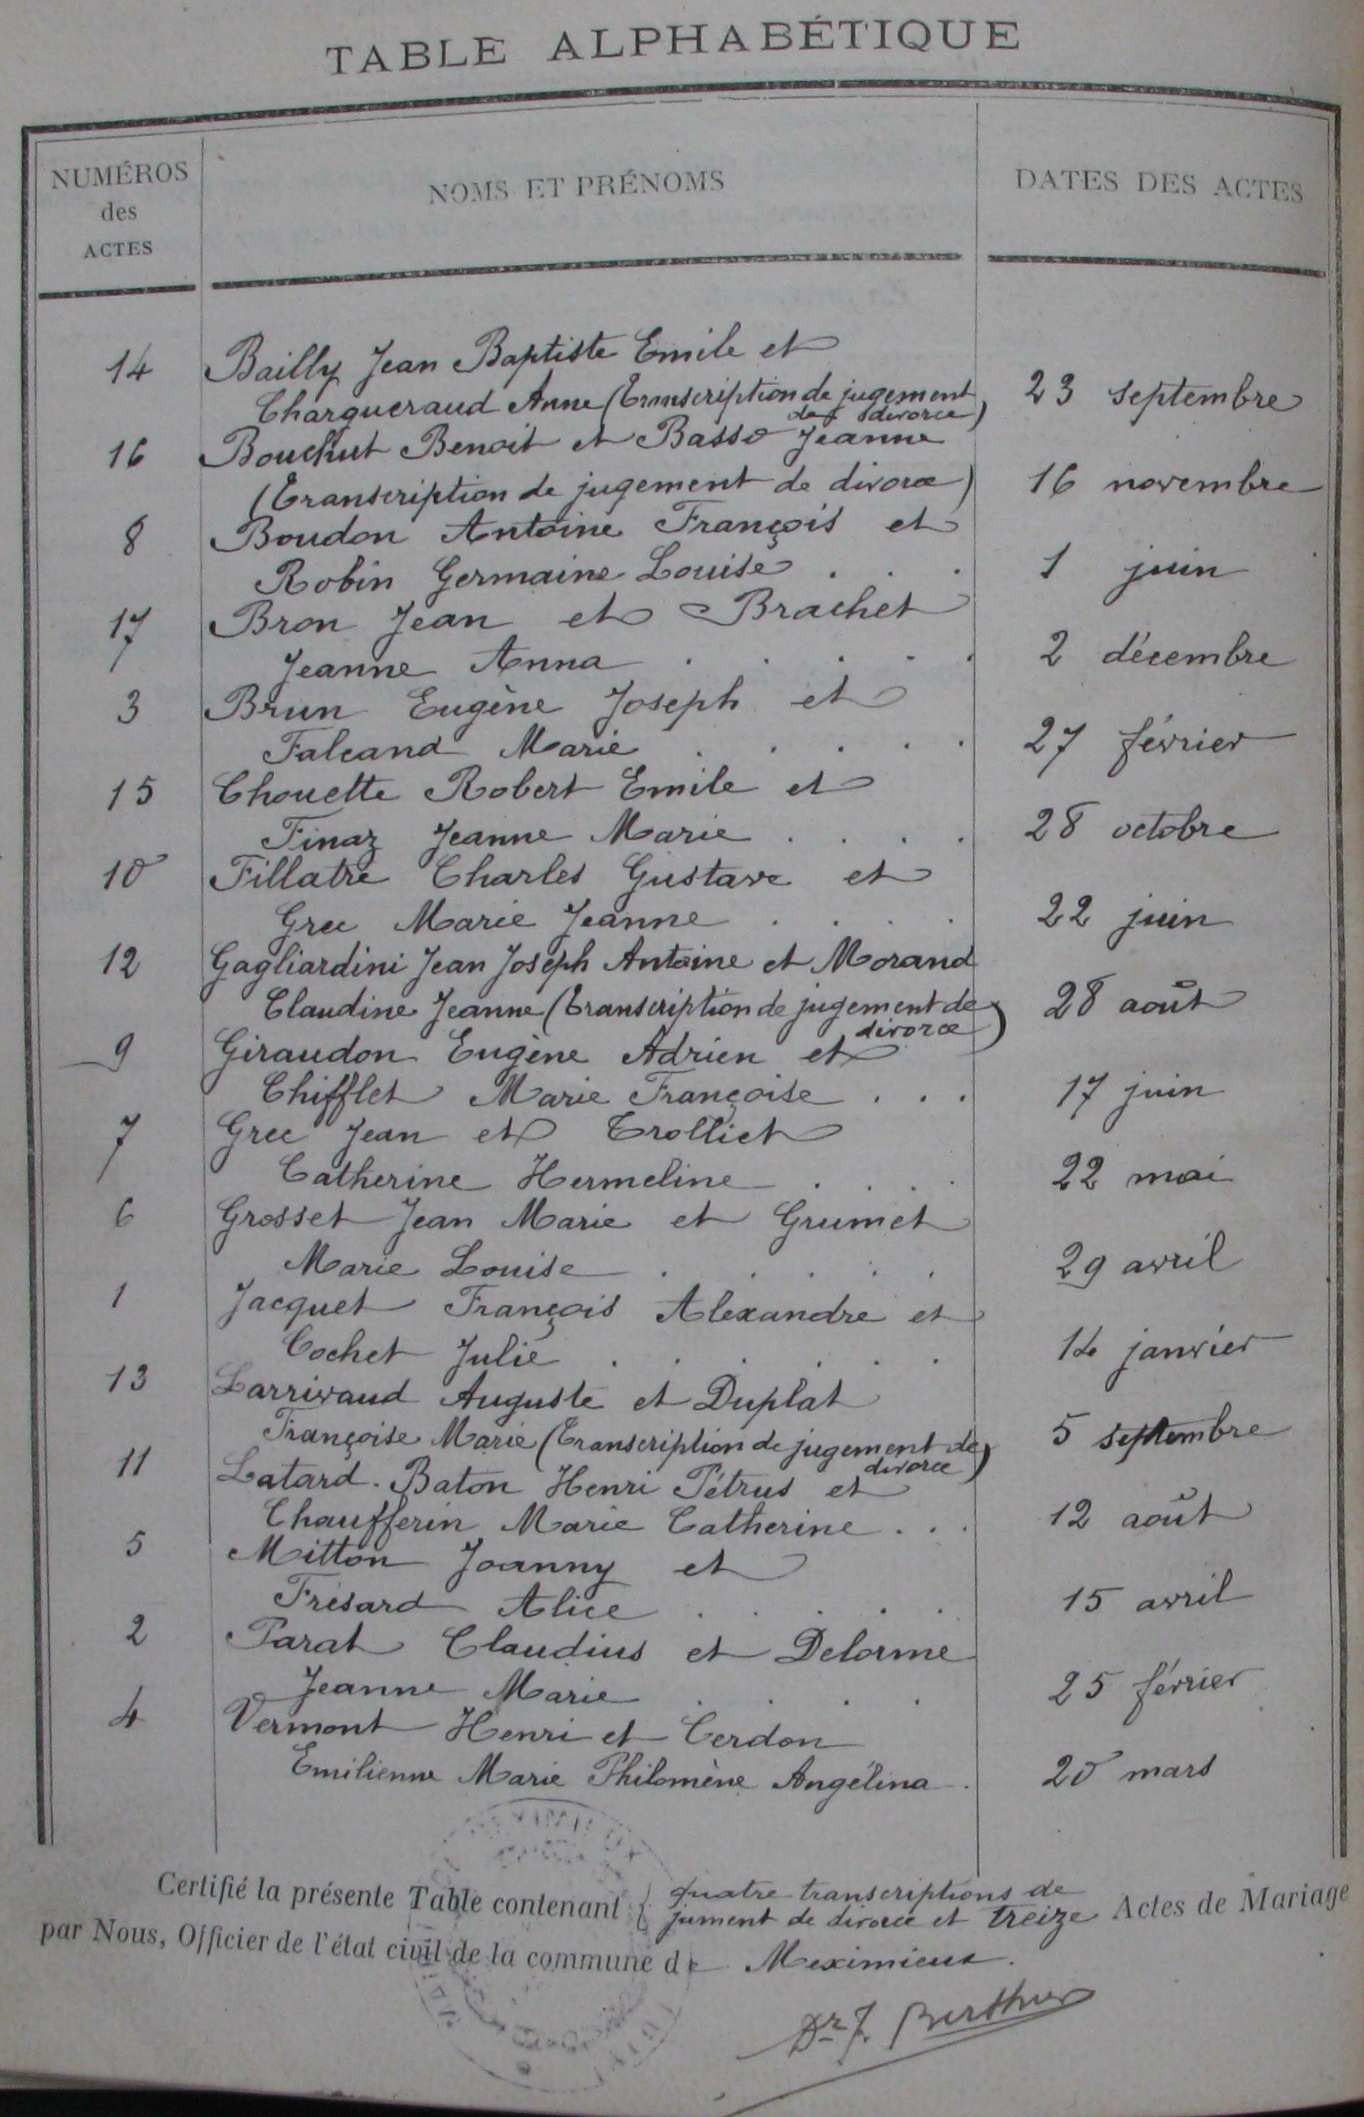 TABLE ALPHABÉTIQUE
NUMÉROS
des
ACTES
NOMS ET PRÉNOMS
DATES DES ACTES
14 Bailly Jean Baptiste Emile et
Chargueraud Anne (Transcription de jugement 23 septembre
de divorce)
16 Bouchut Benoit et Basso Jeanne
(Transcription de jugement de divorce) 16 novembre
8 Boudon Antoine François et
Robin Germaine Louise . . . 1 juin
17 Bron Jean et Brachet
Jeanne Anna . . . . . 2 décembre
3 Brun Eugène Joseph et
Falcand Marie . . . . . 27 février
15 Chouette Robert Emile et
Finaz Jeanne Marie . . . . 28 octobre
10 Fillatre Charles Gustave et
Grec Marie Jeanne . . . . 22 juin
12 Gagliardini Jean Joseph Antoine et Morand
Claudine Jeanne (Transcription de jugement de 28 août
divorce)
9 Giraudon Eugène Adrien et
Chifflet Marie Françoise . . . 17 juin
7 Grec Jean et Trolliet
Catherine Hermeline . . . . 22 mai
6 Grosset Jean Marie et Grumet
Marie Louise . . . . . 29 avril
1 Jacquet François Alexandre et
Cochet Julie . . . . . . 14 janvier
13 Larrivaud Auguste et Duplat
Françoise Marie (Transcription de jugement de 5 septembre
divorce)
11 Latard-Baton Henri Pétrus et
Chaufferin Marie Catherine . . . 12 août
5 Mitton Joanny et
Frésard Alice . . . . . 15 avril
2 Parat Claudius et Delorme
Jeanne Marie . . . . 25 février
4 Vermont Henri et Cerdon
Emilienne Marie Philomène Angélina . 20 mars
Certifié la présente Table contenant { quatre transcriptions de
jument de divorce et treize Actes de Mariage
par Nous, Officier de l'état civil de la commune de Meximieux.
Dr J. Berthier